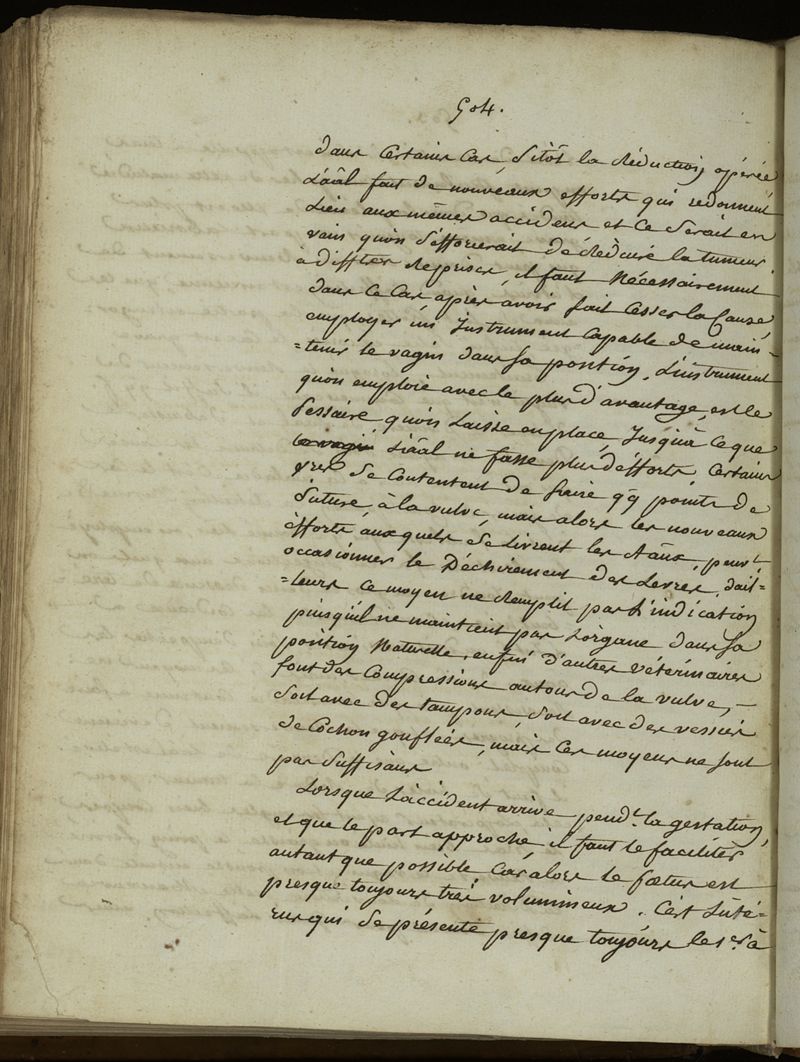 504.
dans Certains Cas sitôt la Réduction opérée
L'aâl fait de nouveaux efforts qui redonnent
Lieu aux mêmes accidens et Ce serait en
vain qu'on s'éfforcerait de Réduire la tumeur
à difftes Reprises, il faut Nécessairement
dans Ce Cas après avoir fait Cesser la Cause
employer un Instrument Capable de main-
=tenir le vagin dans sa position. L'instrument
qu'on emploie avec le plus d'avantage, est le
Pessaire qu'on Laisse en place, Jusqu'à Ce que
L'aâl ne fasse plus d'éfforts, Certains
vres se Contentent de faire qq points de
Suture, à la vulve, mais alors les nouveaux
éfforts auxquels se Livrent les Aâux, peuvt
occasionner le Déchirement des Levres, d'ail-
=leurs Ce moyen ne Remplit pas L'indication
puisqu'il ne maintient pas L'organe dans sa
position Naturelle, enfin D'autres Vétérinaires
font des Compressions autour de la vulve, -
Soit avec des tampons, Soit avec des vessies
de Cochon gonflées, mais Ces moyens ne sont
pas Suffisans
Lorsque L'accident arrive pendt la gestation,
et que le part approche, il faut le faciliter
autant que possible Car alors le fœtus est
presque toujours très volumineux. C'est L'uté-
rus qui se présente presque toujours le 1er à